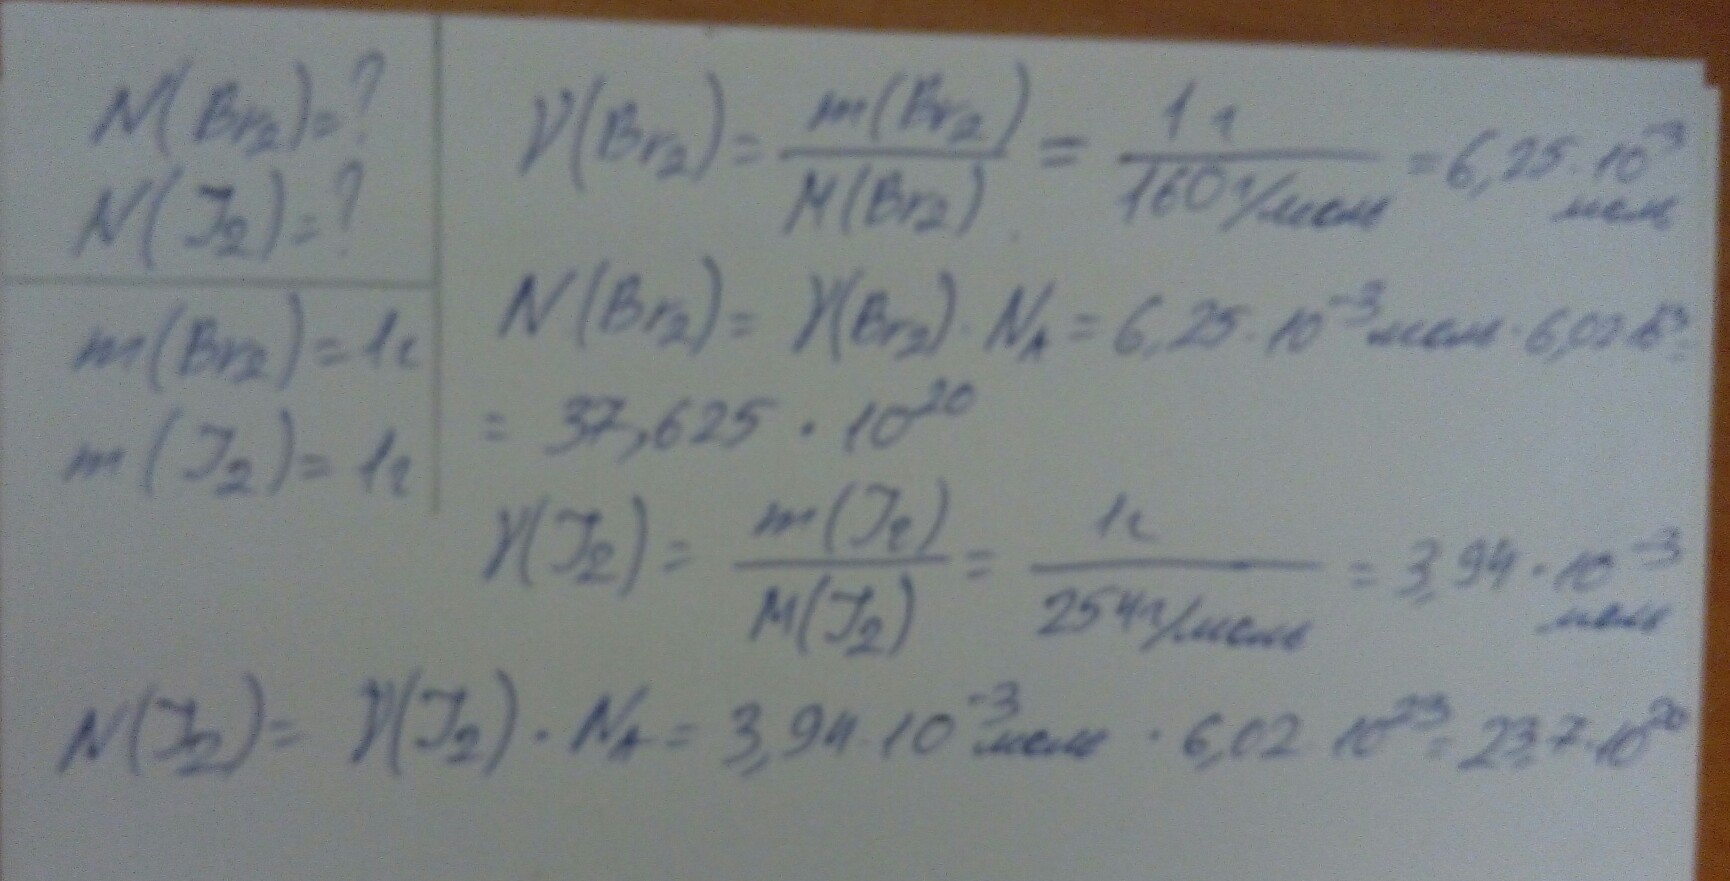 N(Br₂)=?
N(J₂)=?
m(Br₂)=1г
m(J₂)=1г
γ(Br₂) = m(Br₂) / M(Br₂) = 1г / 160г/моль = 6,25·10⁻³ моль
N(Br₂) = γ(Br₂)·N_A = 6,25·10⁻³ моль · 6,02
= 37,625 · 10²⁰
γ(J₂) = m(J₂) / M(J₂) = 1г / 254г/моль = 3,94 · 10⁻³ моль
N(J₂) = γ(J₂) · N_A = 3,94·10⁻³ моль · 6,02 10²³ = 23,7·10²⁰